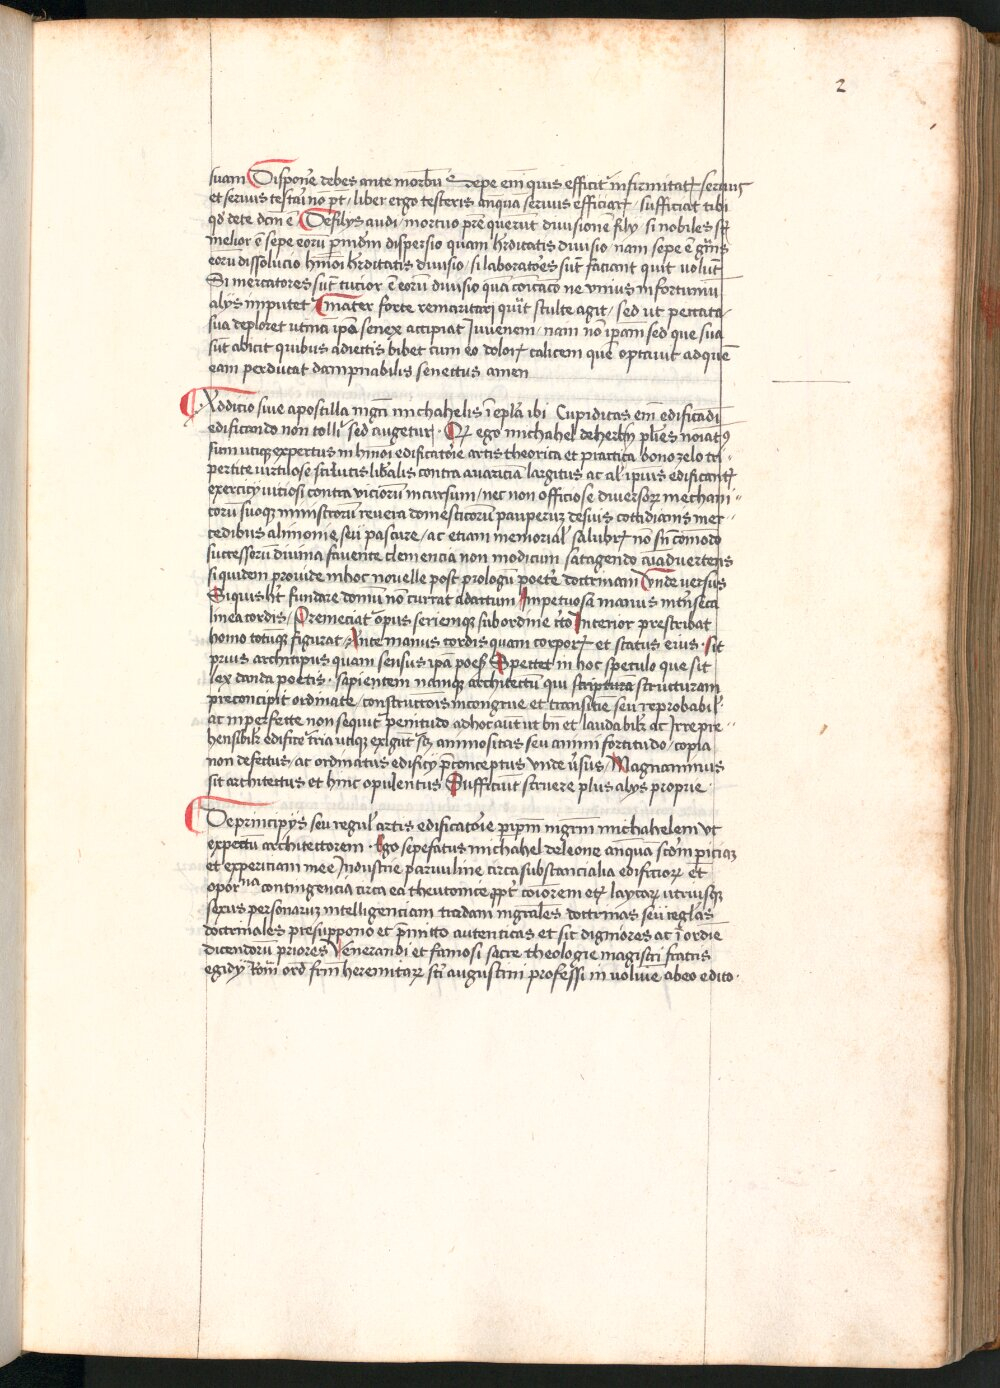 2
suam Disponē debes ante morbū Sepe em̄ quis efficit̄ infirmitatꝭ seruus
et seruus testari nō pt̄ / liber ergo testeris anqua seruus efficiarꝭ / sufficiat tibi
qd de te dcm̄ ē De filys audi / mortuo prē querunt diuisionē fily / si nobiles st̄
melior ē sepe eorū p mūdm̄ dispersio quam hr̄ditatis diuisio / nam sepe ē
eorū dissolucio hm̄oi hr̄ditatis diuisio / si laboratoēs sūt faciant quit uolūt
Si mercatores sūt tucior ē eorū diuisio quā coīcacō ne vnius infortuniū
alys imputet̄ / mater forte remaritari stulte agit / sed ut peccata
sua deploret utinā ipā senex accipiat Iuuenem / nam nō ip̄am sed que sua
sūt abicit quibus adiectis bibet cum eo dolorꝭ calicem quē optauit ad quē
eam perducat dampnabilis senectus amen
Addicio siue apostilla mgrī michahelis ī epl̄a ibi Cupiditas em̄ edificādi
edificando non tolli sed augeturꝭ . Qꝛ ego michahel de herbn̄ pl̄ies noīatꝰ
sum utiqꝫ expertus in hm̄oi edificatoīe artis theorica et practica bono zelo tri
pertite uirtuose scꝫ virtutis libalis contra auariciam largitus ac al ipius edificantꝭ
exercicy uitiosi contra viciorū incursum / nec non officiose diuersorꝝ mechani
corū suoqꝫ ministrorū reuera domesticorū pauperuꝫ de suis cottidianis mer
cedibus alimonie seu pascure / ac etiam memorial salubrꝭ no sn̄ comōdo
successorū diuina fauente clemencia non modicum satagendo aduertens
siquidem prouide in hoc nouelle post prologū poete doctrinam Vnde versus
Si quis ht̄ fundare domū nō currat ad actum Impetuosa manus intrīseca
linea cordis / Premeciat̄ opus seriemqꝫ sub ordine cto Interior prescribat
homo totūqꝫ figurat / Ante manus cordis quam corporꝭ et status eius . sit
prius architipus quam sensus ipā poes Spectet in hoc speculo que sit
lex danda poetis . sapientem namqꝫ architectū qui scriptura structuram
preconcipit ordinate / constructoīs incongrue et transitiē seu reprobabil
ac inperfecte non sequit̄ penitudo ad hoc aut̄ ut bn̄ et laudabilꝭ ac Irrepre
hensibilꝭ edificet̄ tria utiqꝫ exigūt̄ scꝫ animositas seu animi fortitudo / copia
non defectus / ac ordinatus edificy p̄conceptus vnde ūsus / Magnanimus
sit architectus et hinc opulentus Sufficiūt scriuere plus alys proprie .
De principys seu regul artis edificatoīe p ip̄m mgrm̄ michahelem vt
expertū architectorem . Ego sepefatus michahel de leone anqua scdm̄ periciaꝫ
et experitiam mee Industrie paruuline circa substancialia edificiorꝝ et
oportuna contingencia circa ea theutonice ꝓpt̄ coīorem etꝭ laycorꝝ utriusqꝫ
sexus personaruꝫ intelligenciam tradam mgrales doctrinas seu reglas
doctrinales presuppono et p̄mitto autenticas et sic digniores ac ī ordīe
dicendorū priores Venerandi et famosi sacre theologie magistri fratris
egidy Rom̄ ord frm̄ heremitarꝝ scī augustini professi in volumīe ab eo edito .